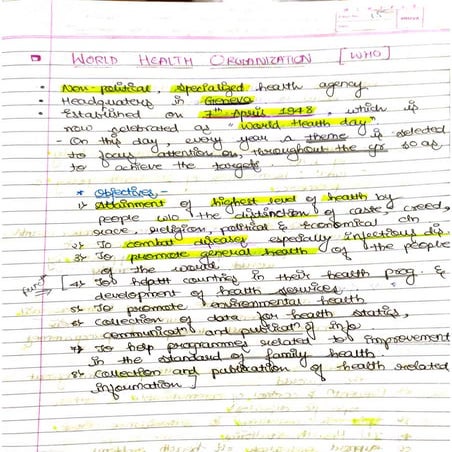 WORLD HEALTH ORGANIZATION [WHO]
• Non-political, Specialized health agency
• Headquaters in Geneva
• Established on 7th April 1948, which is
now celebrated as "World Health day"
- On this day, every year a theme is selected
to focus attention on, throughout the yr so as
to achieve the targets
* Objectives,-
1) Attainment of highest level of health by
people w/o the distinction of caste, creed,
race, religion, political & Economical
2) To combat diseases especially infectious dis
3) To promote general health of the people
of the world
[4) To countries in their health prog. &
development of health services
5) To promote environmental health
6) Collection of data for health
communicatn and publicatn of info
7) To help programmes related to improvement
in the standard of family health.
8) Collection and publication of health related
information]